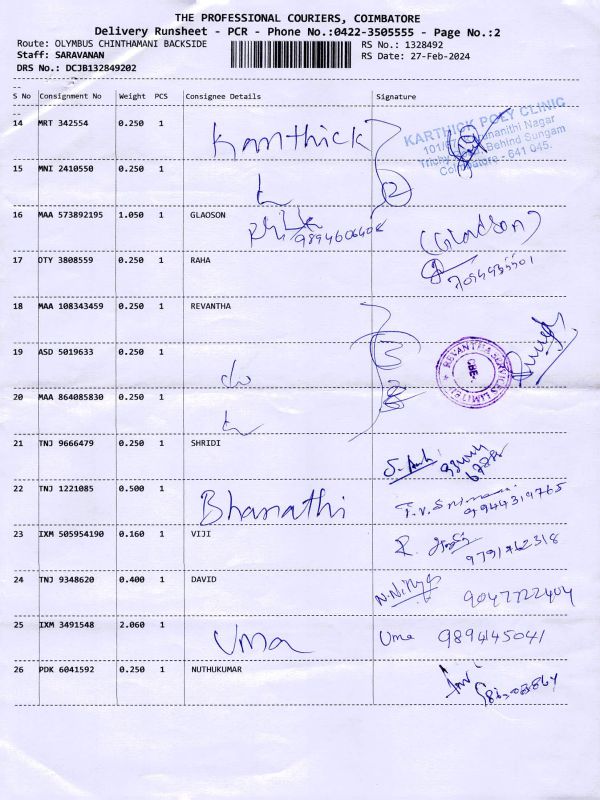 THE PROFESSIONAL COURIERS, COIMBATORE
Delivery Runsheet - PCR - Phone No.:0422-3505555 - Page No.:2
Route: OLYMBUS CHINTHAMANI BACKSIDE RS No.: 1328492
Staff: SARAVANAN RS Date: 27-Feb-2024
DRS No.: DCJB132849202
S No Consignment No Weight PCS Consignee Details Signature
14 MRT 342554 0.250 1 Kamthick
KARTHICK POLY CLINIC
Nagar
Behind Sungam
Coimbatore - 641 045.
15 MNI 2410550 0.250 1 2
16 MAA 573892195 1.050 1 GLAOSON
17 DTY 3808559 0.250 1 RAHA
18 MAA 108343459 0.250 1 REVANTHA
19 ASD 5019633 0.250 1 3
REVANTHA SERVICES LIMITED CBE
20 MAA 864085830 0.250 1
21 TNJ 9666479 0.250 1 SHRIDI
22 TNJ 1221085 0.500 1 Bhanathi 9944319765
23 IXM 505954190 0.160 1 VIJI 9791762318
24 TNJ 9348620 0.400 1 DAVID 9047722404
25 IXM 3491548 2.060 1 Uma Uma 9894145041
26 PDK 6041592 0.250 1 NUTHUKUMAR